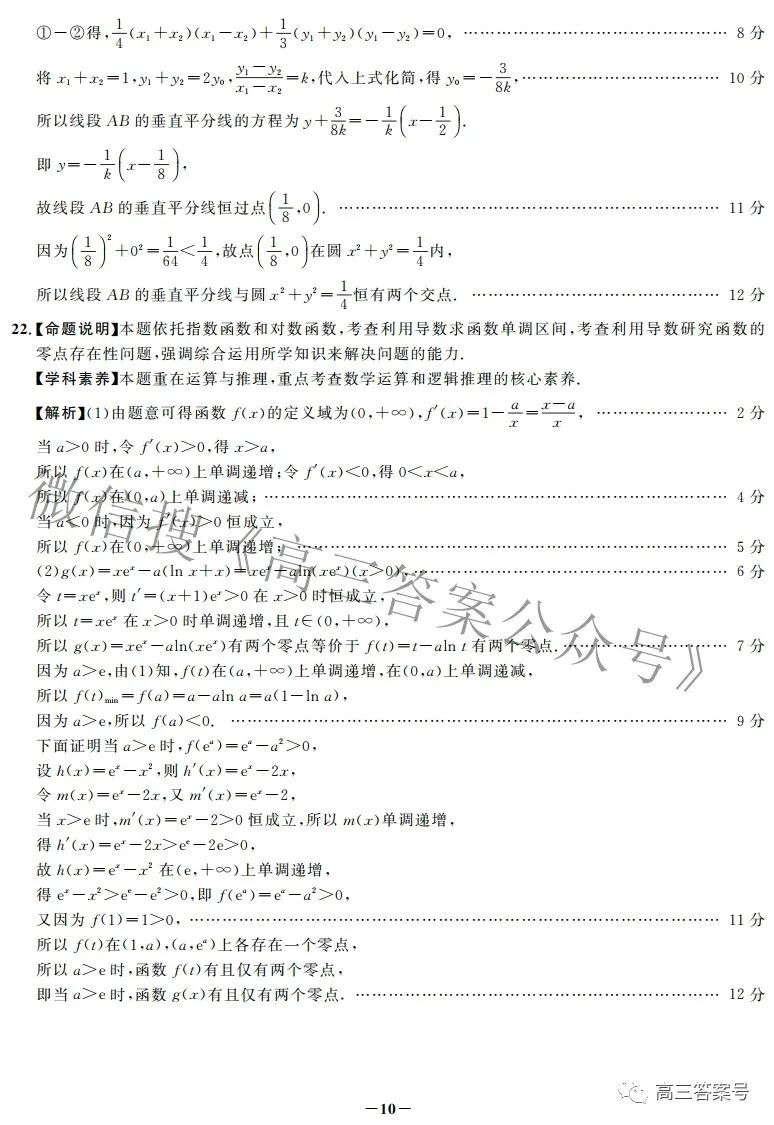 ①－②得,1/4(x₁+x₂)(x₁－x₂)+1/3(y₁+y₂)(y₁－y₂)=0, …………………………………… 8分
将x₁+x₂=1,y₁+y₂=2y₀,(y₁－y₂)/(x₁－x₂)=k,代入上式化简,得y₀=－3/(8k),…………………………… 10分
所以线段AB的垂直平分线的方程为y+3/(8k)=－1/k(x－1/2).
即y=－1/k(x－1/8),
故线段AB的垂直平分线恒过点(1/8,0). ……………………………………………………… 11分
因为(1/8)²+0²=1/64<1/4,故点(1/8,0)在圆x²+y²=1/4内,
所以线段AB的垂直平分线与圆x²+y²=1/4恒有两个交点. …………………………………… 12分
22.【命题说明】本题依托指数函数和对数函数,考查利用导数求函数单调区间,考查利用导数研究函数的
零点存在性问题,强调综合运用所学知识来解决问题的能力.
【学科素养】本题重在运算与推理,重点考查数学运算和逻辑推理的核心素养.
【解析】(1)由题意可得函数f(x)的定义域为(0,+∞),f′(x)=1－a/x=(x－a)/x, ………………… 2分
当a>0时,令f′(x)>0,得x>a,
所以f(x)在(a,+∞)上单调递增;令f′(x)<0,得0<x<a,
所以f(x)在(0,a)上单调递减; ………………………………………………………………… 4分
当a<0时,因为f′(x)>0恒成立,
所以f(x)在(0,+∞)上单调递增; ……………………………………………………………… 5分
(2)g(x)=xeˣ－a(ln x+x)=xeˣ－aln(xeˣ)(x>0), …………………………………………… 6分
令t=xeˣ,则t′=(x+1)eˣ>0在x>0时恒成立,
所以t=xeˣ在x>0时单调递增,且t∈(0,+∞),
所以g(x)=xeˣ－aln(xeˣ)有两个零点等价于f(t)=t－aln t有两个零点. …………………… 7分
因为a>e,由(1)知,f(t)在(a,+∞)上单调递增,在(0,a)上单调递减,
所以f(t)min=f(a)=a－aln a=a(1－ln a),
因为a>e,所以f(a)<0. ……………………………………………………………………… 9分
下面证明当a>e时,f(eᵃ)=eᵃ－a²>0,
设h(x)=eˣ－x²,则h′(x)=eˣ－2x,
令m(x)=eˣ－2x,又m′(x)=eˣ－2,
当x>e时,m′(x)=eˣ－2>0恒成立,所以m(x)单调递增,
得h′(x)=eˣ－2x>eᵉ－2e>0,
故h(x)=eˣ－x²在(e,+∞)上单调递增,
得eˣ－x²>eᵉ－e²>0,即f(eᵃ)=eᵃ－a²>0,
又因为f(1)=1>0, …………………………………………………………………………… 11分
所以f(t)在(1,a),(a,eᵃ)上各存在一个零点,
所以a>e时,函数f(t)有且仅有两个零点,
即当a>e时,函数g(x)有且仅有两个零点. …………………………………………………… 12分
微信搜《高三答案公众号》
高三答案号
—10—